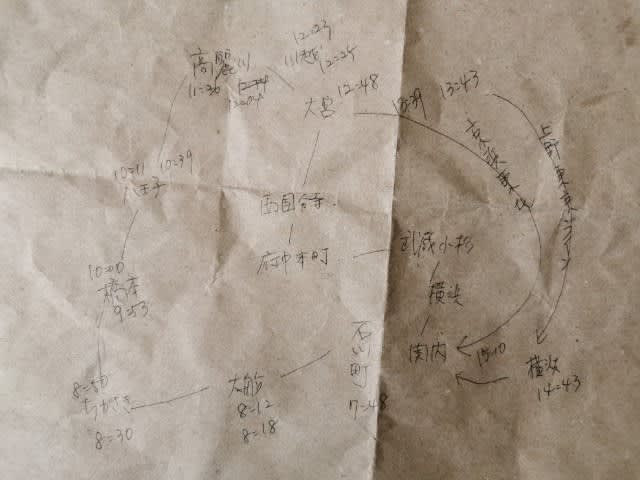 12=23
高麗川
川越
12=25
11=26
大宮 12=48
13=43
10=11 10=39
八王子
京浜東北
上野東京ライン
西国分寺
府中本町
武蔵小杉
横浜
10=00
橋本
9=53
石川町
7=48
関内
15=10
横浜
14=43
8=50
ちがさき
8=30
大船
8=12
8=18